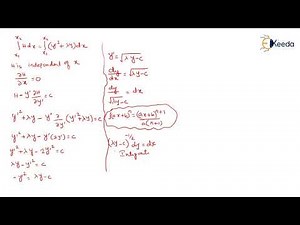 ∫ H dx = ∫ (y'² + λy) dx
x₁ x₁
H is independent of x,
∂H/∂x = 0
H - y' ∂H/∂y' = c
y'² + λy - y' ∂/∂y' (y'² + λy) = c
y'² + λy - y'(2y') = c
y'² + λy - 2y'² = c
λy - y'² = c
-y'² = λy - c
y' = √λy-c
dy/dx = √λy-c
dy/√λy-c = dx
∫(ax+b)ⁿ = (ax+b)ⁿ⁺¹/a(n+1)
(λy-c)^-1/2 dy = dx
Integrat
Ekeeda